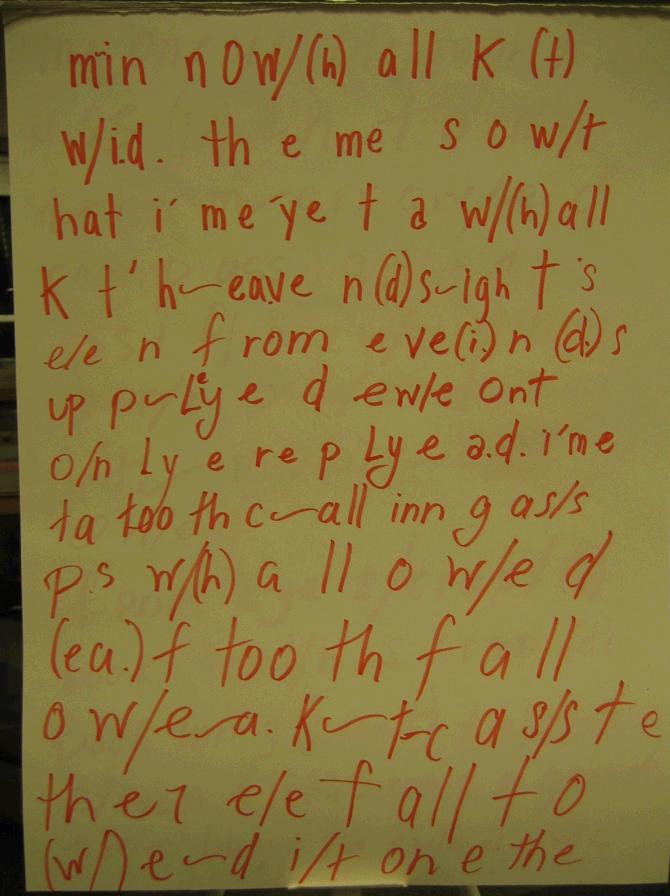 min now/(h) all K (t)
w/i.d. th e me s o w/t
hat i'me'ye t a w/(h)all
K t'h~eave n(d)s~igh t's
e/e n from eve(i.)n (d.)s
up p~Liy e d ew/e ont
o/n Ly e re p Lye a.d. i'me
ta too th c~all inn g as/s
p.s w/(h) a ll o w/e d
(ea.)f too th f a ll
o w/e~a. K~t~c a s/s t e
ther e/e fall t o
(w/) e~d i/t on e the